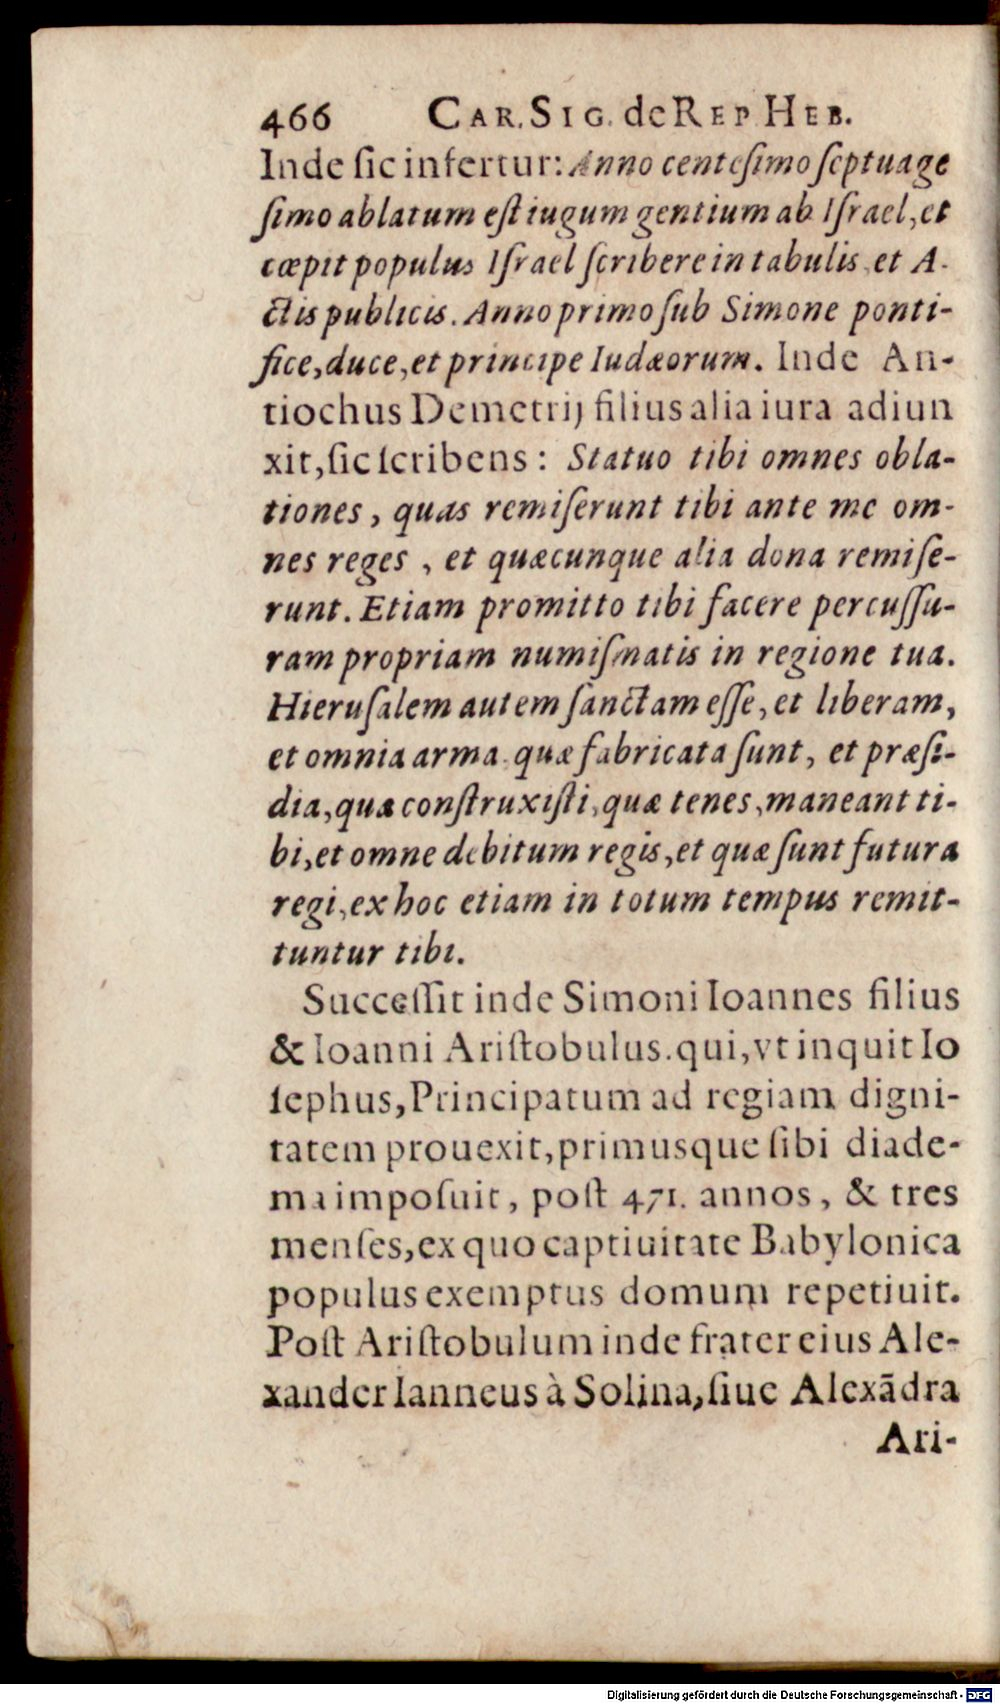 466 CAR. SIG. de REP HEB.
Inde ſic infertur: Anno centeſimo ſeptuage
ſimo ablatum eſt iugum gentium ab Iſrael, et
cœpit populus Iſrael ſcribere in tabulis et A-
ctis publicis. Anno primo ſub Simone ponti-
fice, duce, et principe Iudæorum. Inde An-
tiochus Demetrij filius alia iura adiun
xit, ſic ſcribens: Statuo tibi omnes obla-
tiones, quas remiſerunt tibi ante me om-
nes reges, et quæcunque alia dona remiſe-
runt. Etiam promitto tibi facere percuſſu-
ram propriam numiſmatis in regione tua.
Hieruſalem autem ſanctam eſſe, et liberam,
et omnia arma, quæ fabricata ſunt, et præſi-
dia, quæ conſtruxiſti, quæ tenes, maneant ti-
bi, et omne debitum regis, et quæ ſunt futura
regi, ex hoc etiam in totum tempus remit-
tuntur tibi.
Succeſſit inde Simoni Ioannes filius
& Ioanni Ariſtobulus. qui, vt inquit Io
ſephus, Principatum ad regiam digni-
tatem prouexit, primusque ſibi diade-
ma impoſuit, poſt 471. annos, & tres
menſes, ex quo captiuitate Babylonica
populus exemptus domum repetiuit.
Poſt Ariſtobulum inde frater eius Ale-
xander Ianneus à Solina, ſiue Alexãdra
Ari-
Digitalisierung gefördert durch die Deutsche Forschungsgemeinschaft - DFG